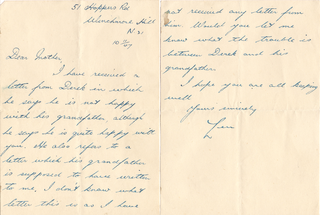 51 Hoppers Rd
Winchmore Hill
N. 21
Dear Mother,
I have received a
letter from Derek in which
he says he is not happy
with his grandfather although
he says he is quite happy with
you. He also refers to a
letter which his grandfather
is supposed to have written
to me, I don't know what
letter this is as I have
not received any letter from
him. Would you let me
know what the trouble is
between Derek and his
grandfather.
I hope you are all keeping
well
Yours sincerely